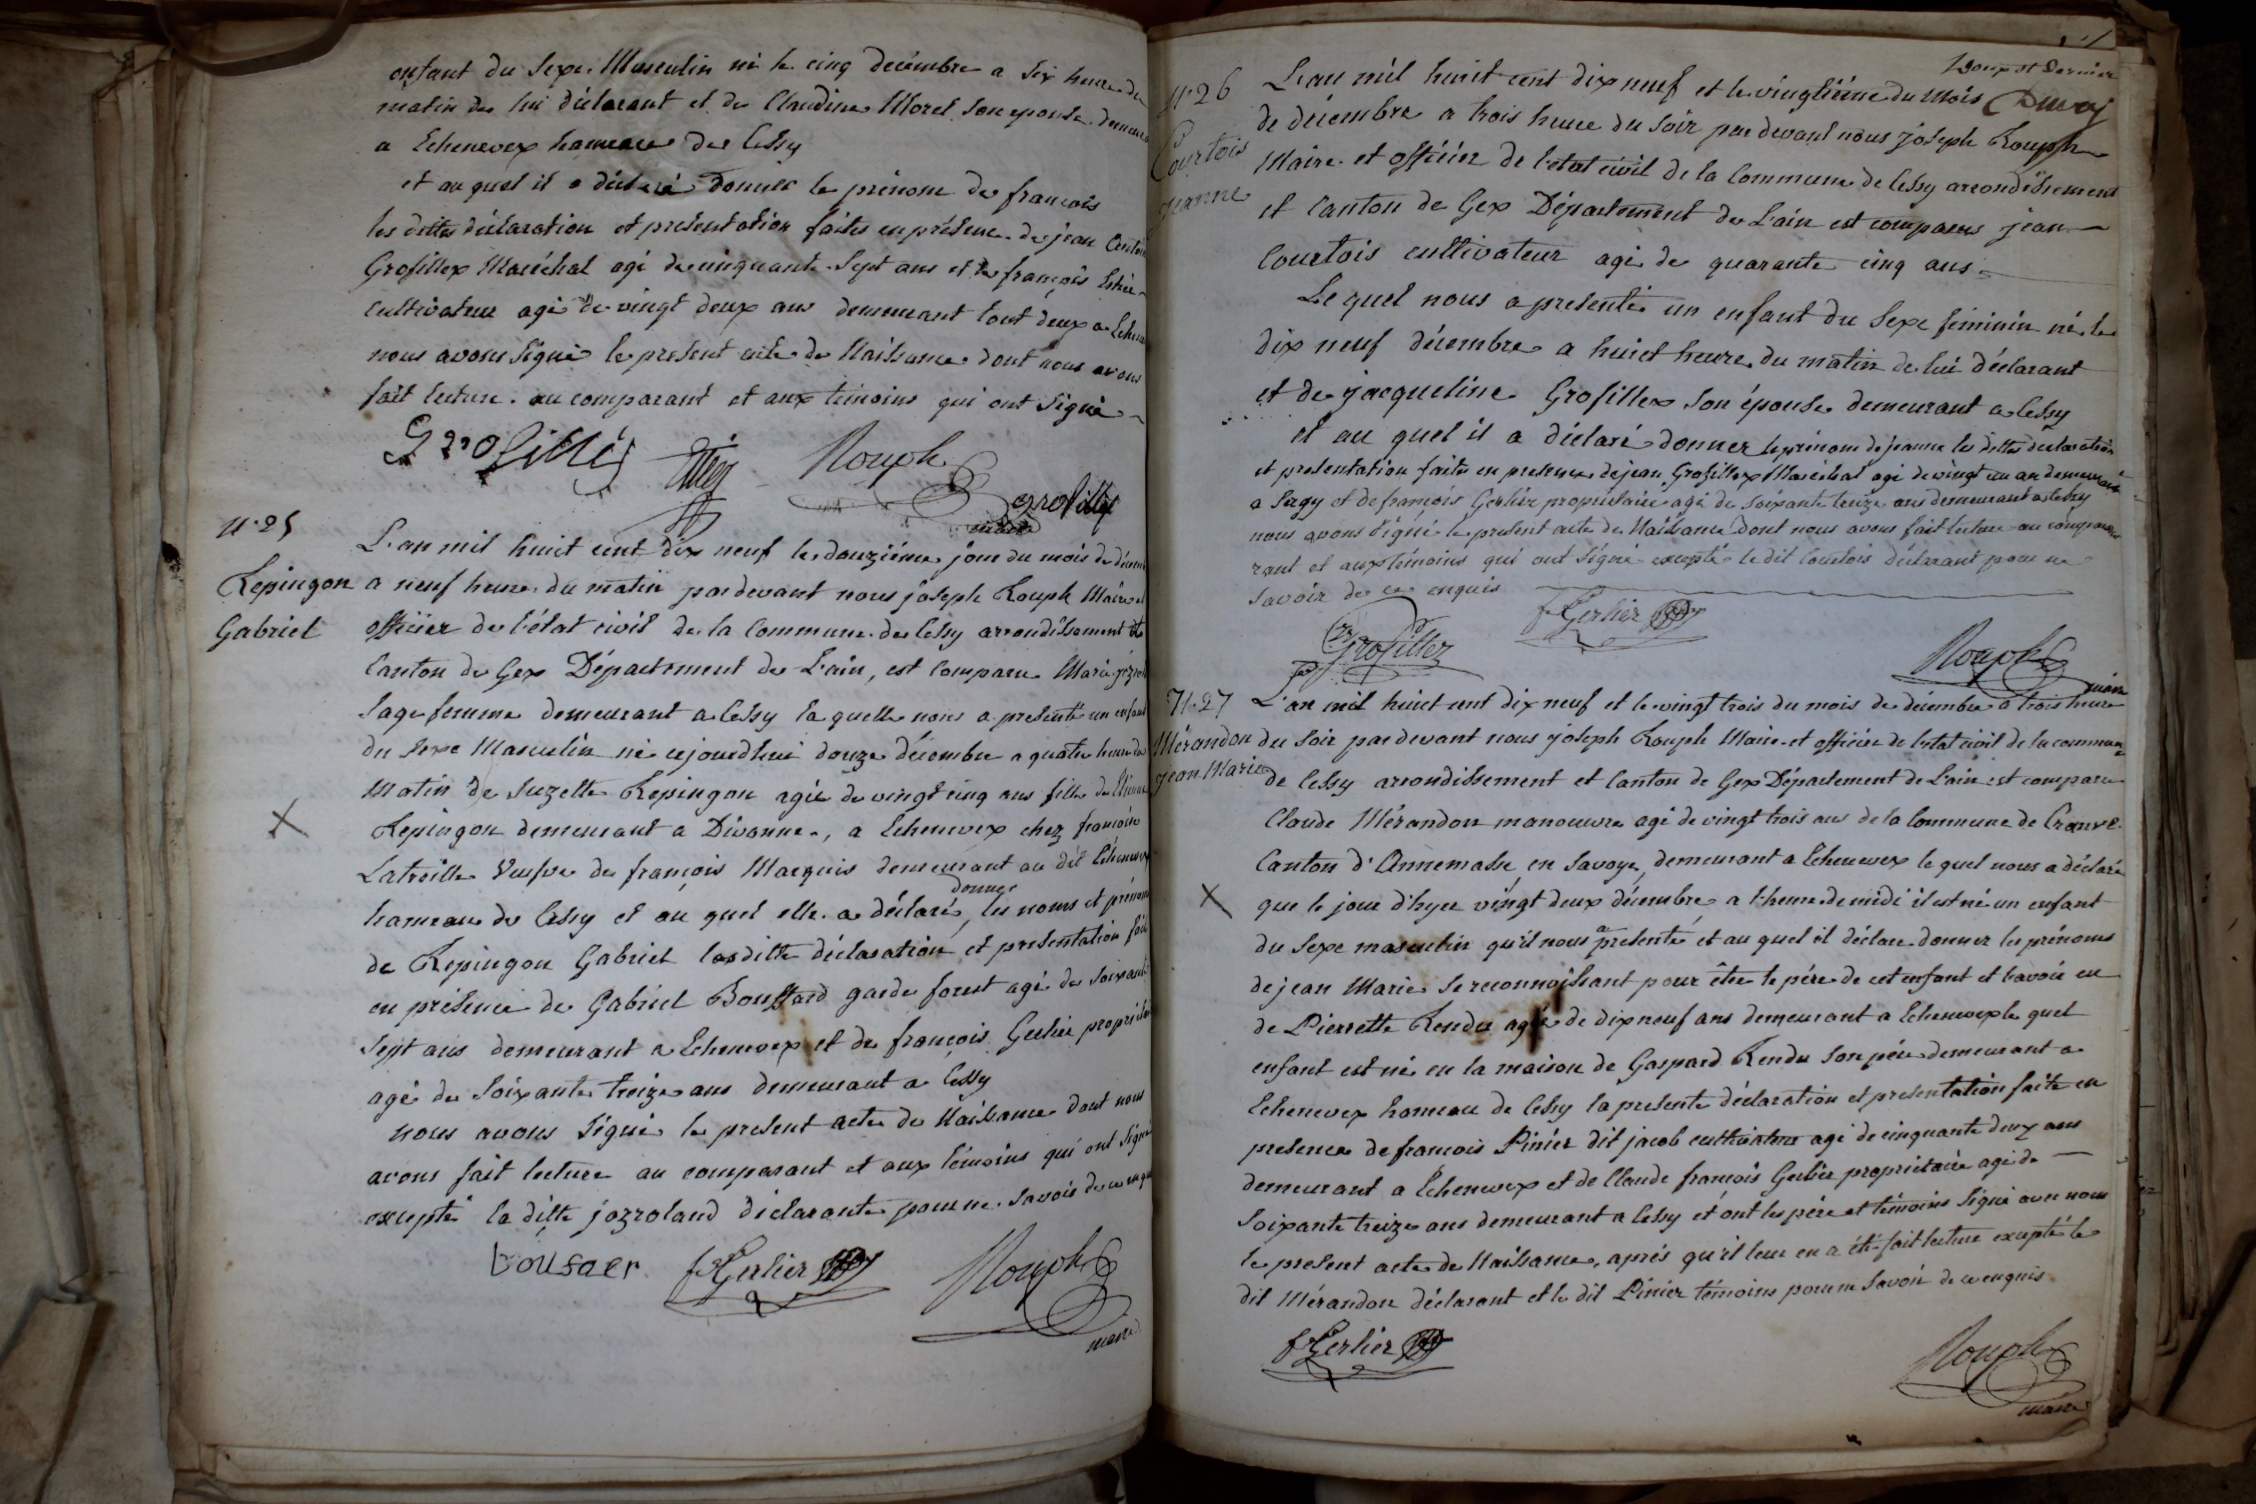 enfant du Sexe Masculin né le cinq décembre a Six heure du
matin de lui déclarant et de Claudine Morel Son epouse
a Echenevex hameau de Cessy
et au quel il a déclaré donner le prénom de francois
les dittes déclaration et présentation faites en présence de jean
Grosillex Maréchal agé de cinquante Sept ans et de françois
cultivateur agé de vingt deux ans demeurant tout deux a
nous avons Signé le présent acte de Naissance dont nous avons
fait lecture au comparant et aux témoins qui ont Signé
Grosillex Rouph
Grosillex
maire
N° 25
Repingon
Gabriel
L'an mil huit cent dix neuf le douzième jour du mois de
a neuf heure du matin pardevant nous joseph Rouph Maire et
officier de l'état civil de la Commune de Cessy arrondissement et
Canton de Gex Département de L'ain, est comparu Marie
Sage femme demeurant a Cessy la quelle nous a presenté un enfant
du Sexe Masculin né cejourdhui douze décembre a quatre heure du
Matin de Suzette Repingon agée de vingt cinq ans fille de
Repingon demeurant a Divonne, a Echenevex chez francoise
Latreille Veufve de françois Marquis demeurant au dit Echenevex
donner
hameau de Cessy et au quel elle a déclaré, les noms et prénoms
de Repingon Gabriel lesditte déclaration et presentation
en présence de Gabriel Boussard garde forest agé de Soixante
Sept ans demeurant a Echenevex et de françois Gerlier
agé de Soixante treize ans demeurant a Cessy
Nous avons Signé le present acte de Naissance dont nous
avons fait lecture au comparant et aux témoins qui ont Signé
excepté la ditte jozroland déclarante pour ne Savoir de ce
bousaer fGerlier Rouph
maire
Dury
N° 26
Courtois
jeanne
L'an mil huit cent dix neuf et le vingtiéme du Mois
de décembre a trois heure du Soir par devant nous joseph Rouph
Maire et officier de l'etat civil de la Commune de Cessy arrondissement
et Canton de Gex Département de L'ain est comparus jean
Courtois cultivateur agé de quarante cinq ans
Le quel nous a presenté un enfant du Sexe féminin né le
dix neuf décembre a huict heure du matin de lui déclarant
et de jacqueline Grosillex Son épouse demeurant a Cessy
et au quel il a déclaré donner le prénom de jeanne les dittes declaration
et presentation faite en presence de jean Grosillex Maréchal agé de vingt un an demeurant
a Segy et de françois Gerlier propriétaire agé de Soixante treize ans demeurant a Cessy
nous avons Signé le present acte de Naissance dont nous avons fait lecture au compa
rant et aux témoins qui ont Signé excepté le dit Courtois déclarant pour ne
Savoir de ce enquis
Grosillex fGerlier Rouph
maire
N° 27
Mérandon
jean Marie
L'an mil huict cent dix neuf et le vingt trois du mois de décembre a trois heure
du Soir pardevant nous joseph Rouph Maire et officier de l'etat civil de la commune
de Cessy arrondissement et Canton de Gex Département de L'ain est comparu
Claude Mérandon manoeuvre agé de vingt trois ans de la Commune de Cranve
Canton d'Annemasse en Savoye, demeurant a Echenevex le quel nous a déclaré
que le jour d'hyer vingt deux décembre a l'heure de midi il est né un enfant
a
du Sexe masculin qu'il nous presenté et au quel il déclare donner les prénoms
de jean Marie Se reconnoissant pour être le pére de cet enfant et l'avoir eu
de Pierrette Rendu agée de dix neuf ans demeurant a Echenevex le quel
enfant est né en la maison de Gaspard Rendu Son pére demeurant a
Echenevex hameau de Cessy la presente déclaration et presentation faite en
presence de francois Pinier dit jacob cultivateur agé de cinquante deux ans
demeurant a Echenevex et de Claude françois Gerlier propriétaire agé de
Soixante treize ans demeurant a Cessy et ont les pére et témoins Signé avec nous
le present acte de Naissance, aprés qu'il leur en a été fait lecture excepté le
dit Mérandon déclarant et le dit Pinier témoins pour ne Savoir de ce enquis
fGerlier Rouph
maire